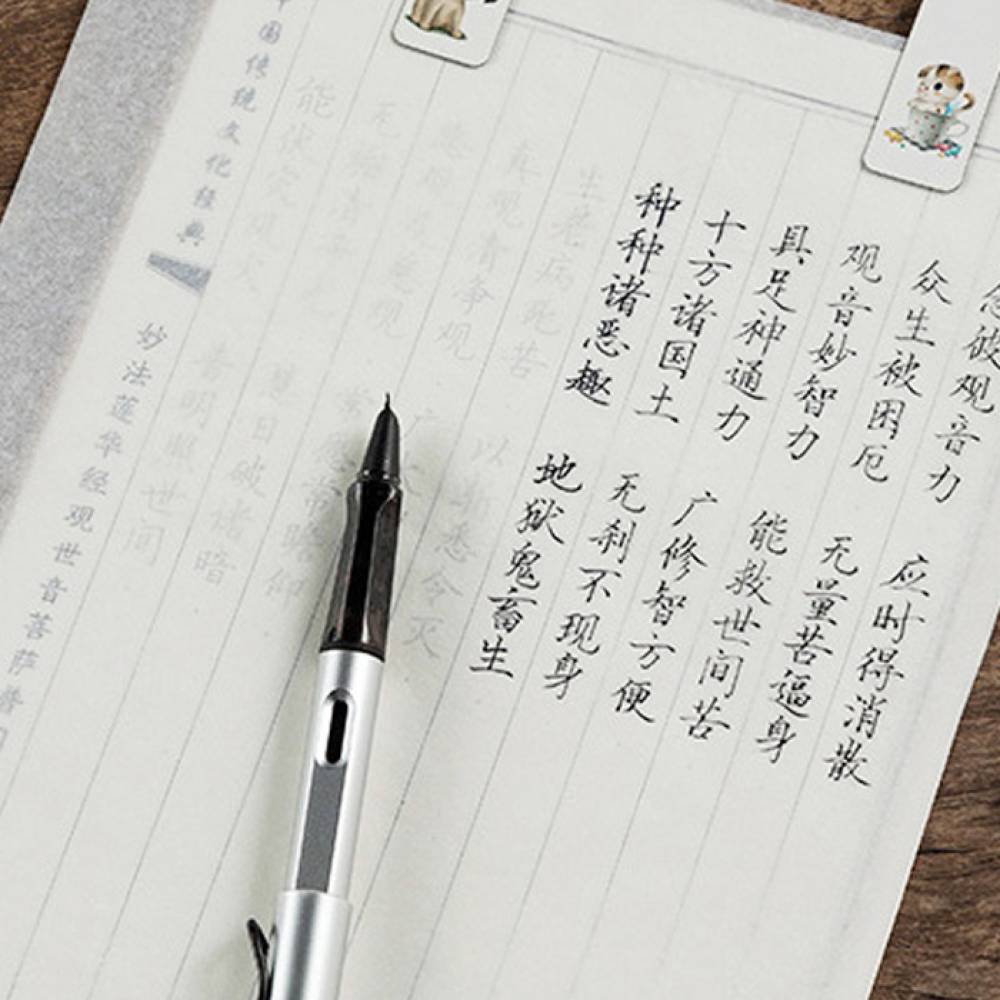 念彼观音力 应时得消散
众生被困厄 无量苦逼身
观音妙智力 能救世间苦
具足神通力 广修智方便
十方诸国土 无刹不现身
种种诸恶趣 地狱鬼畜生
生老病死苦 以渐悉令灭
真观清净观 广大
悲观及慈观 常愿常瞻仰
无垢清净光 慧日破诸暗
能伏灾风火 普明照世间
中国传统文化经典 妙法莲华经观世音菩萨普门